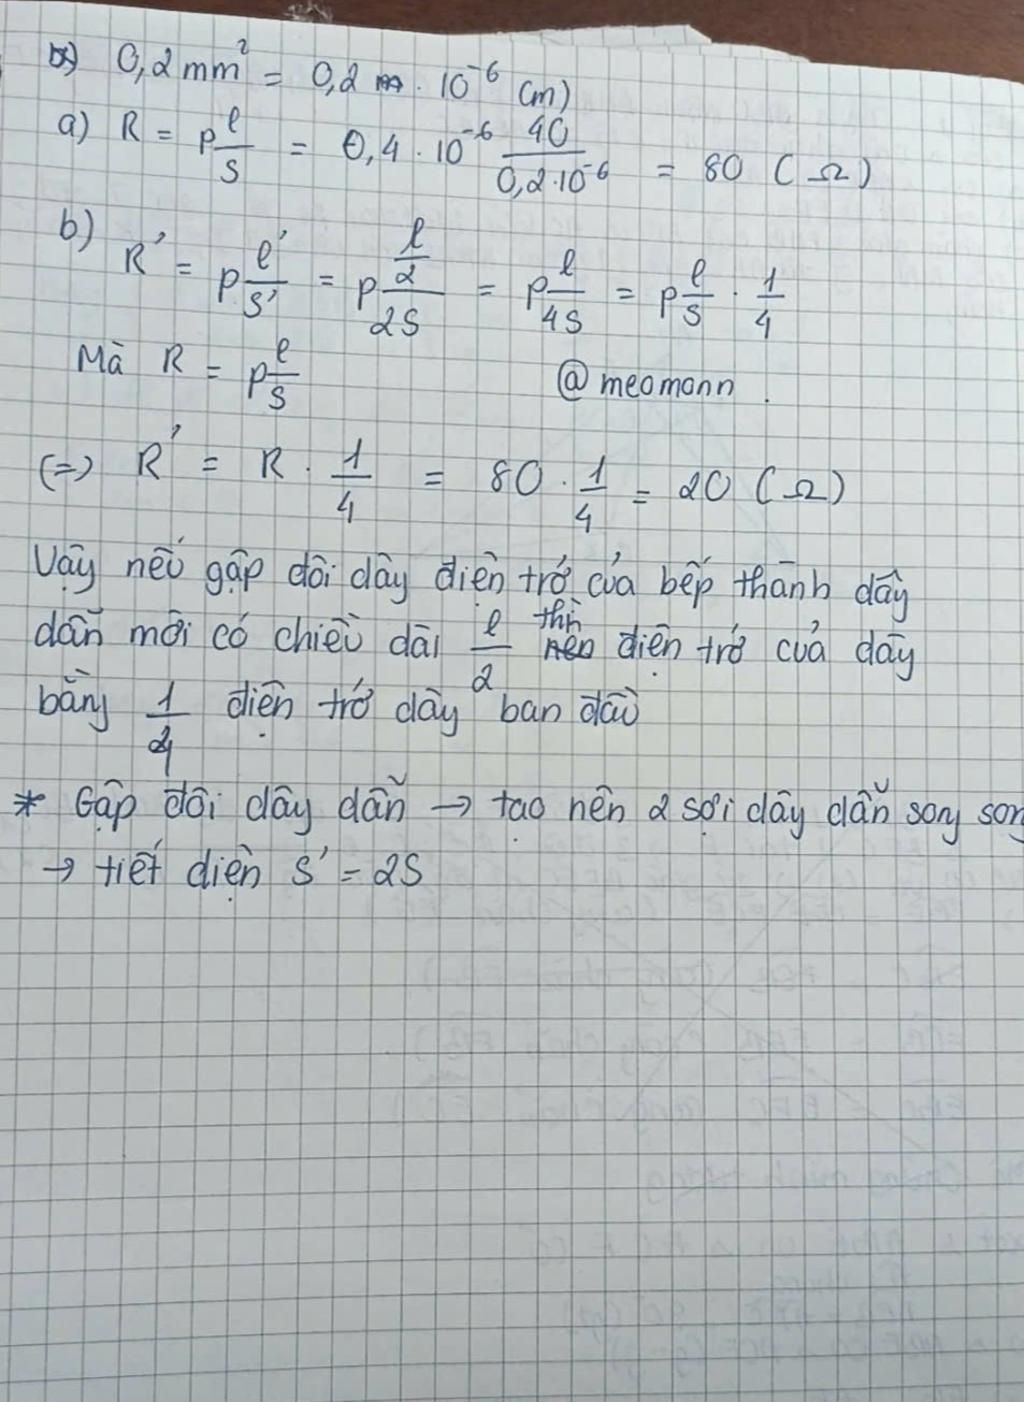 0,2 mm² = 0,2 . 10⁻⁶ (m)
a) R = p l/S = 0,4 . 10⁻⁶ 40/0,2.10⁻⁶ = 80 (Ω)
b) R' = p l'/S' = p (l/2)/2S = p l/4S = p l/S . 1/4
Mà R = p l/S @meomann .
(=) R' = R . 1/4 = 80 . 1/4 = 20 (Ω)
Vậy nếu gập đôi dây điện trở của bếp thành dây
dẫn mới có chiều dài l/2 thì điện trở của dây
bằng 1/4 điện trở dây ban đầu
* Gập đôi dây dẫn → tạo nên 2 sợi dây dẫn song song
→ tiết diện S' = 2S